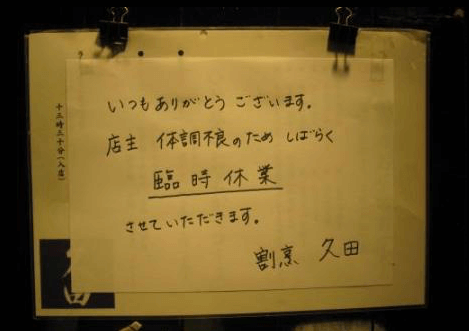 いつもありがとうございます。
店主 体調不良のため しばらく
臨時休業
させていただきます。
割烹 久田
十三時三十分(入店)